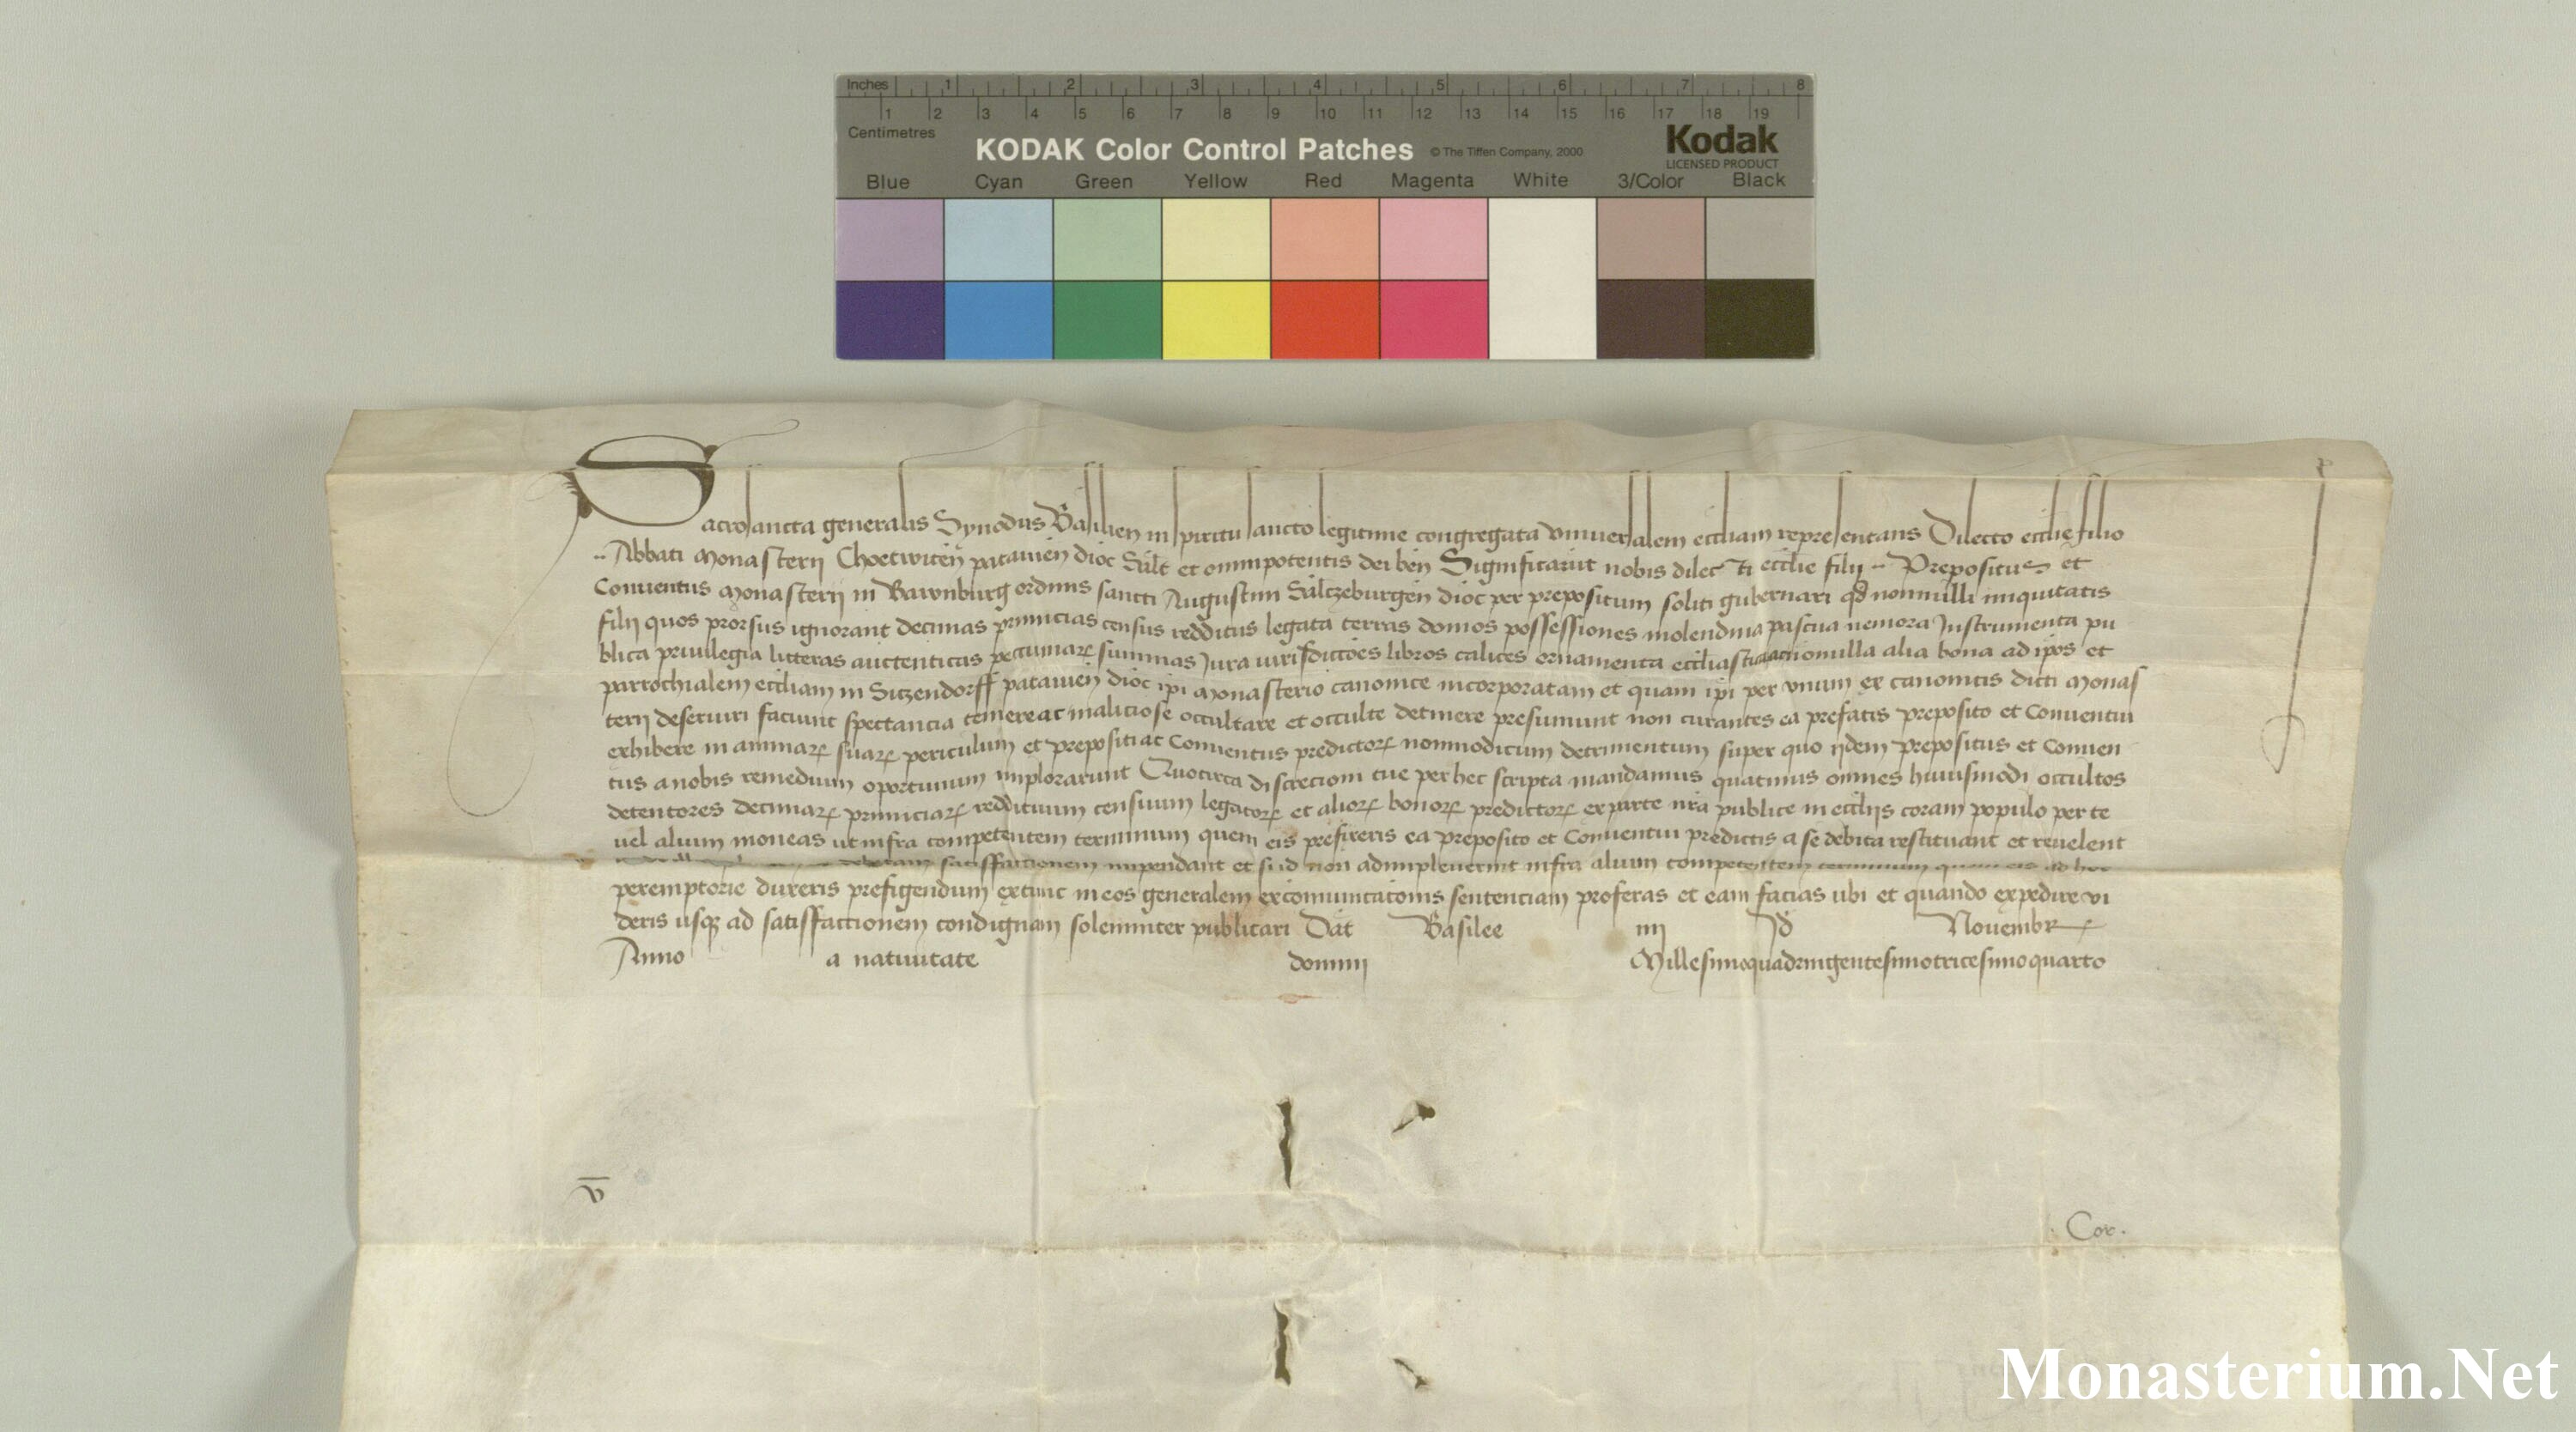 Inches 1 2 3 4 5 6 7 8
1 2 3 4 5 6 7 8 9 10 11 12 13 14 15 16 17 18 19
Centimetres
KODAK Color Control Patches © The Tiffen Company, 2000 Kodak
LICENSED PRODUCT
Blue Cyan Green Yellow Red Magenta White 3/Color Black
Sacrosancta generalis Synodus Basilien in spiritu sancto legitime congregata vniuersalem eccliam representans Dilecto ecclie filio
.. Abbati Monasterij Choetwiceñ patauien dioc Salt et omnipotentis dei ben Significarunt nobis dilecti ecclie filij .. Prepositus et
Conuentus Monasterij in Rawnburg ordinis sancti Augustini Saltzeburgen dioc per prepositum soliti gubernari qd nonnulli iniquitatis
filij quos prorsus ignorant decimas primicias census redditus legata terras domos possessiones molendina pascua nemora Instrumenta pu
blica priuilegia litteras auctenticas pecuniarꝝ summas Iura iurisdictoes libros calices ornamenta eccliastica ac nonulla alia bona ad ipos et
parrochialem eccliam in Sitzendorff patauien dioc ipi Monasterio canonice incorporatam et quam ipi per vnum ex canonicis dicti Monas
terij deseruiri faciunt spectancia temere ac maliciose occultare et occulte detinere presumunt non curantes ea prefatis preposito et Conuentui
exhibere in animarꝝ suarꝝ periculum et prepositi ac Conuentus predictorꝝ nonmodicum detrimentum super quo ijdem prepositus et Conuen
tus a nobis remedium oportunum implorarunt Quocirca discrecioni tue per hec scripta mandamus quatinus omnes huiusmodi occultos
detentores decimarꝝ primiciarꝝ reddituum censuum legatorꝝ et aliorꝝ bonorꝝ predictorꝝ ex parte nra publice in eccliis coram populo per te
uel alium moneas ut infra competentem terminum quem eis prefixeris ea preposito et Conuentui predictis a se debita restituant et reuelent
satisffactionem impendant et si id non adimpleuerint infra alium competentem terminum quem eis ad hoc
peremptorie duxeris prefigendum extunc in eos generalem excomunicatonis sentenciam proferas et eam facias ubi et quando expedire vi
deris usqꝫ ad satisffactionem condignam solemniter publicari Dat Basilee iiij Id Nouembr
Anno a natiuitate domini Millesimoquadringentesimotricesimoquarto
Cor.
Monasterium.Net